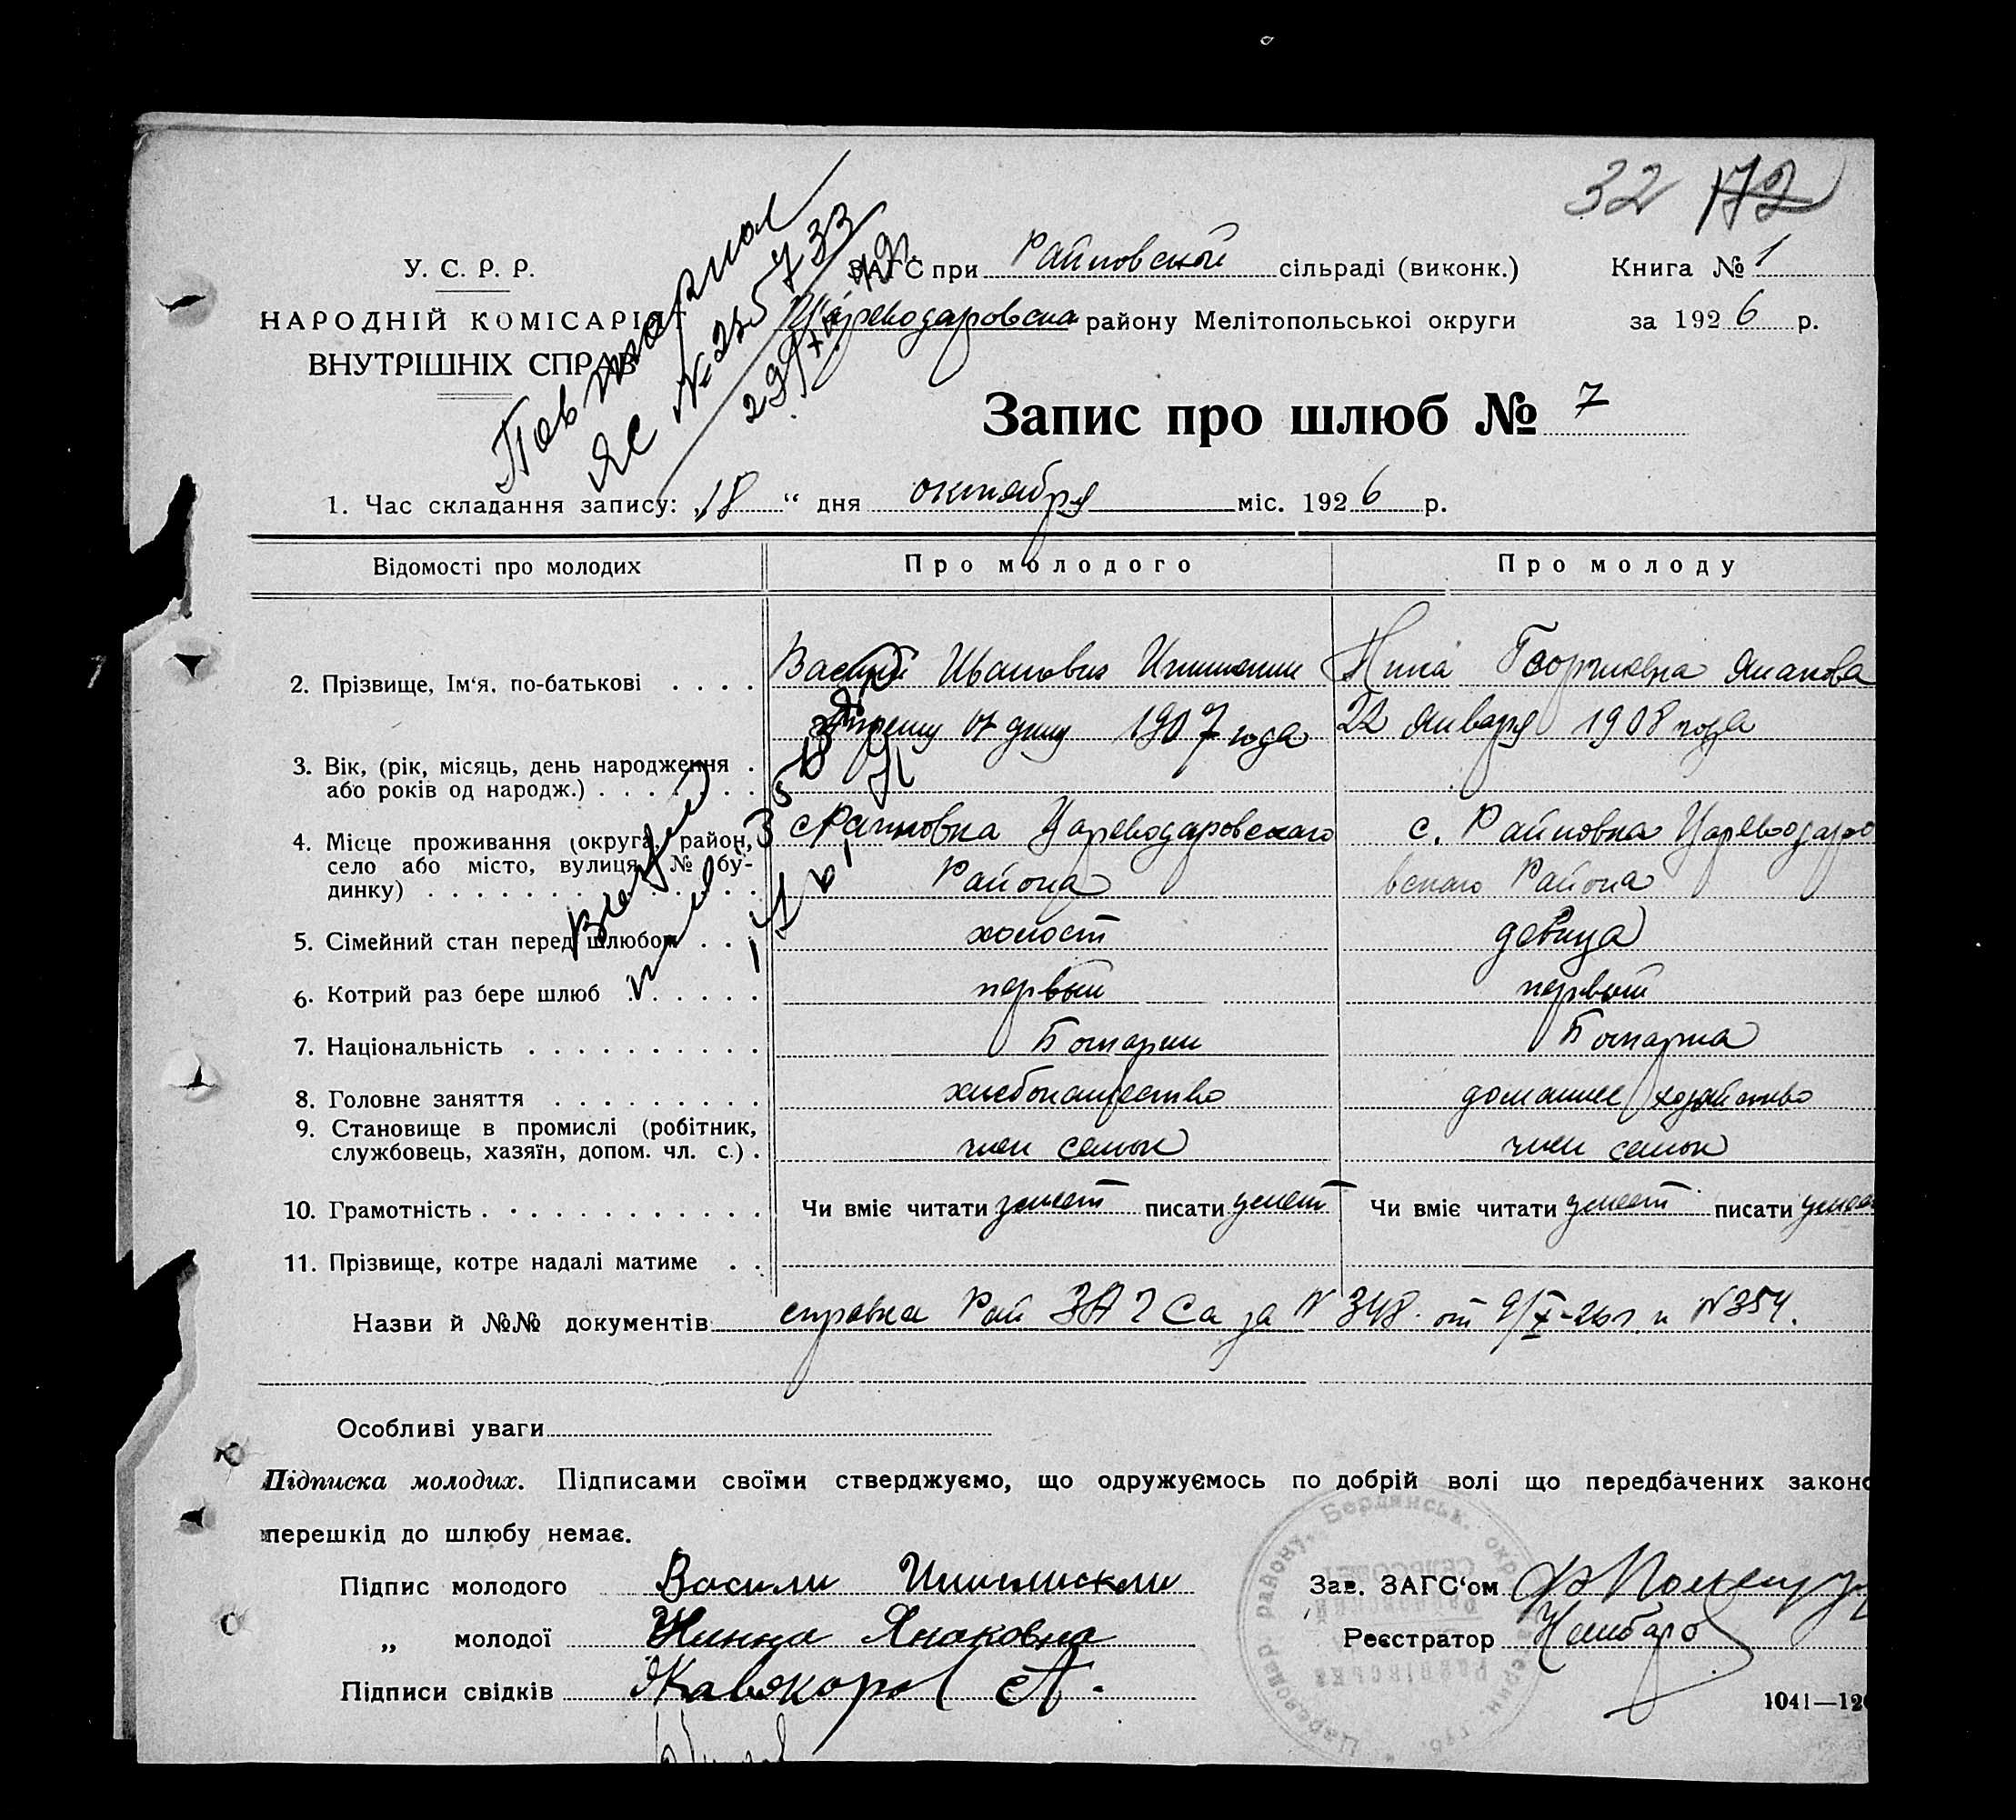 32 172
У. С. Р. Р.
НАРОДНІЙ КОМІСАРІЯТ
ВНУТРІШНІХ СПРАВ
Повторное
ЯС № 733
ЗАГС при Райновской сільраді (виконк.)
Цареводаровска району Мелітопольської округи
Книга № 1
за 1926 р.
Запис про шлюб № 7
1. Час складання запису: „18“ дня октября міс. 1926 р.
Відомості про молодих
Про молодого
Про молоду
2. Прізвище, Ім‘я, по-батькові . . . .
Василий Иванович
Нина Георгиевна Янакова
3. Вік, (рік, місяць, день народження .
або років од народж.) . . . . . . .
1907 года
22 января 1908 года
4. Місце проживання (округа, район,
село або місто, вулиця, № бу-
динку) . . . . . . . . . . . . . .
с Райновка Цареводаровскаго
Района
с. Райновка Цареводаро
вскаго Района
5. Сімейний стан перед шлюбом . . .
холост
девица
6. Котрий раз бере шлюб . . . . . .
первый
первый
7. Національність . . . . . . . . . .
Болгарин
Болгарка
8. Головне заняття . . . . . . . . .
хлебопашество
домашнее хозяйство
9. Становище в промислі (робітник,
службовець, хазяїн, допом. чл. с.) .
член семьи
член семьи
10. Грамотність . . . . . . . . . . . .
Чи вміє читати умеет писати умеет
Чи вміє читати умеет писати умеет
11. Прізвище, котре надалі матиме . .
Назви й №№ документів справка Рай ЗАГСа за N 348 от 9/X-26 г. и N 354.
Особливі уваги
Підписка молодих. Підписами своїми стверджуємо, що одружуємось по добрій волі що передбачених законо
перешкід до шлюбу немає.
Підпис молодого Васили
„ молодої Нинна Янаковна
Підписи свідків
Зав. ЗАГС‘ом
Реєстратор
Цареводар. району, Бердянськ. окр.
1041—12